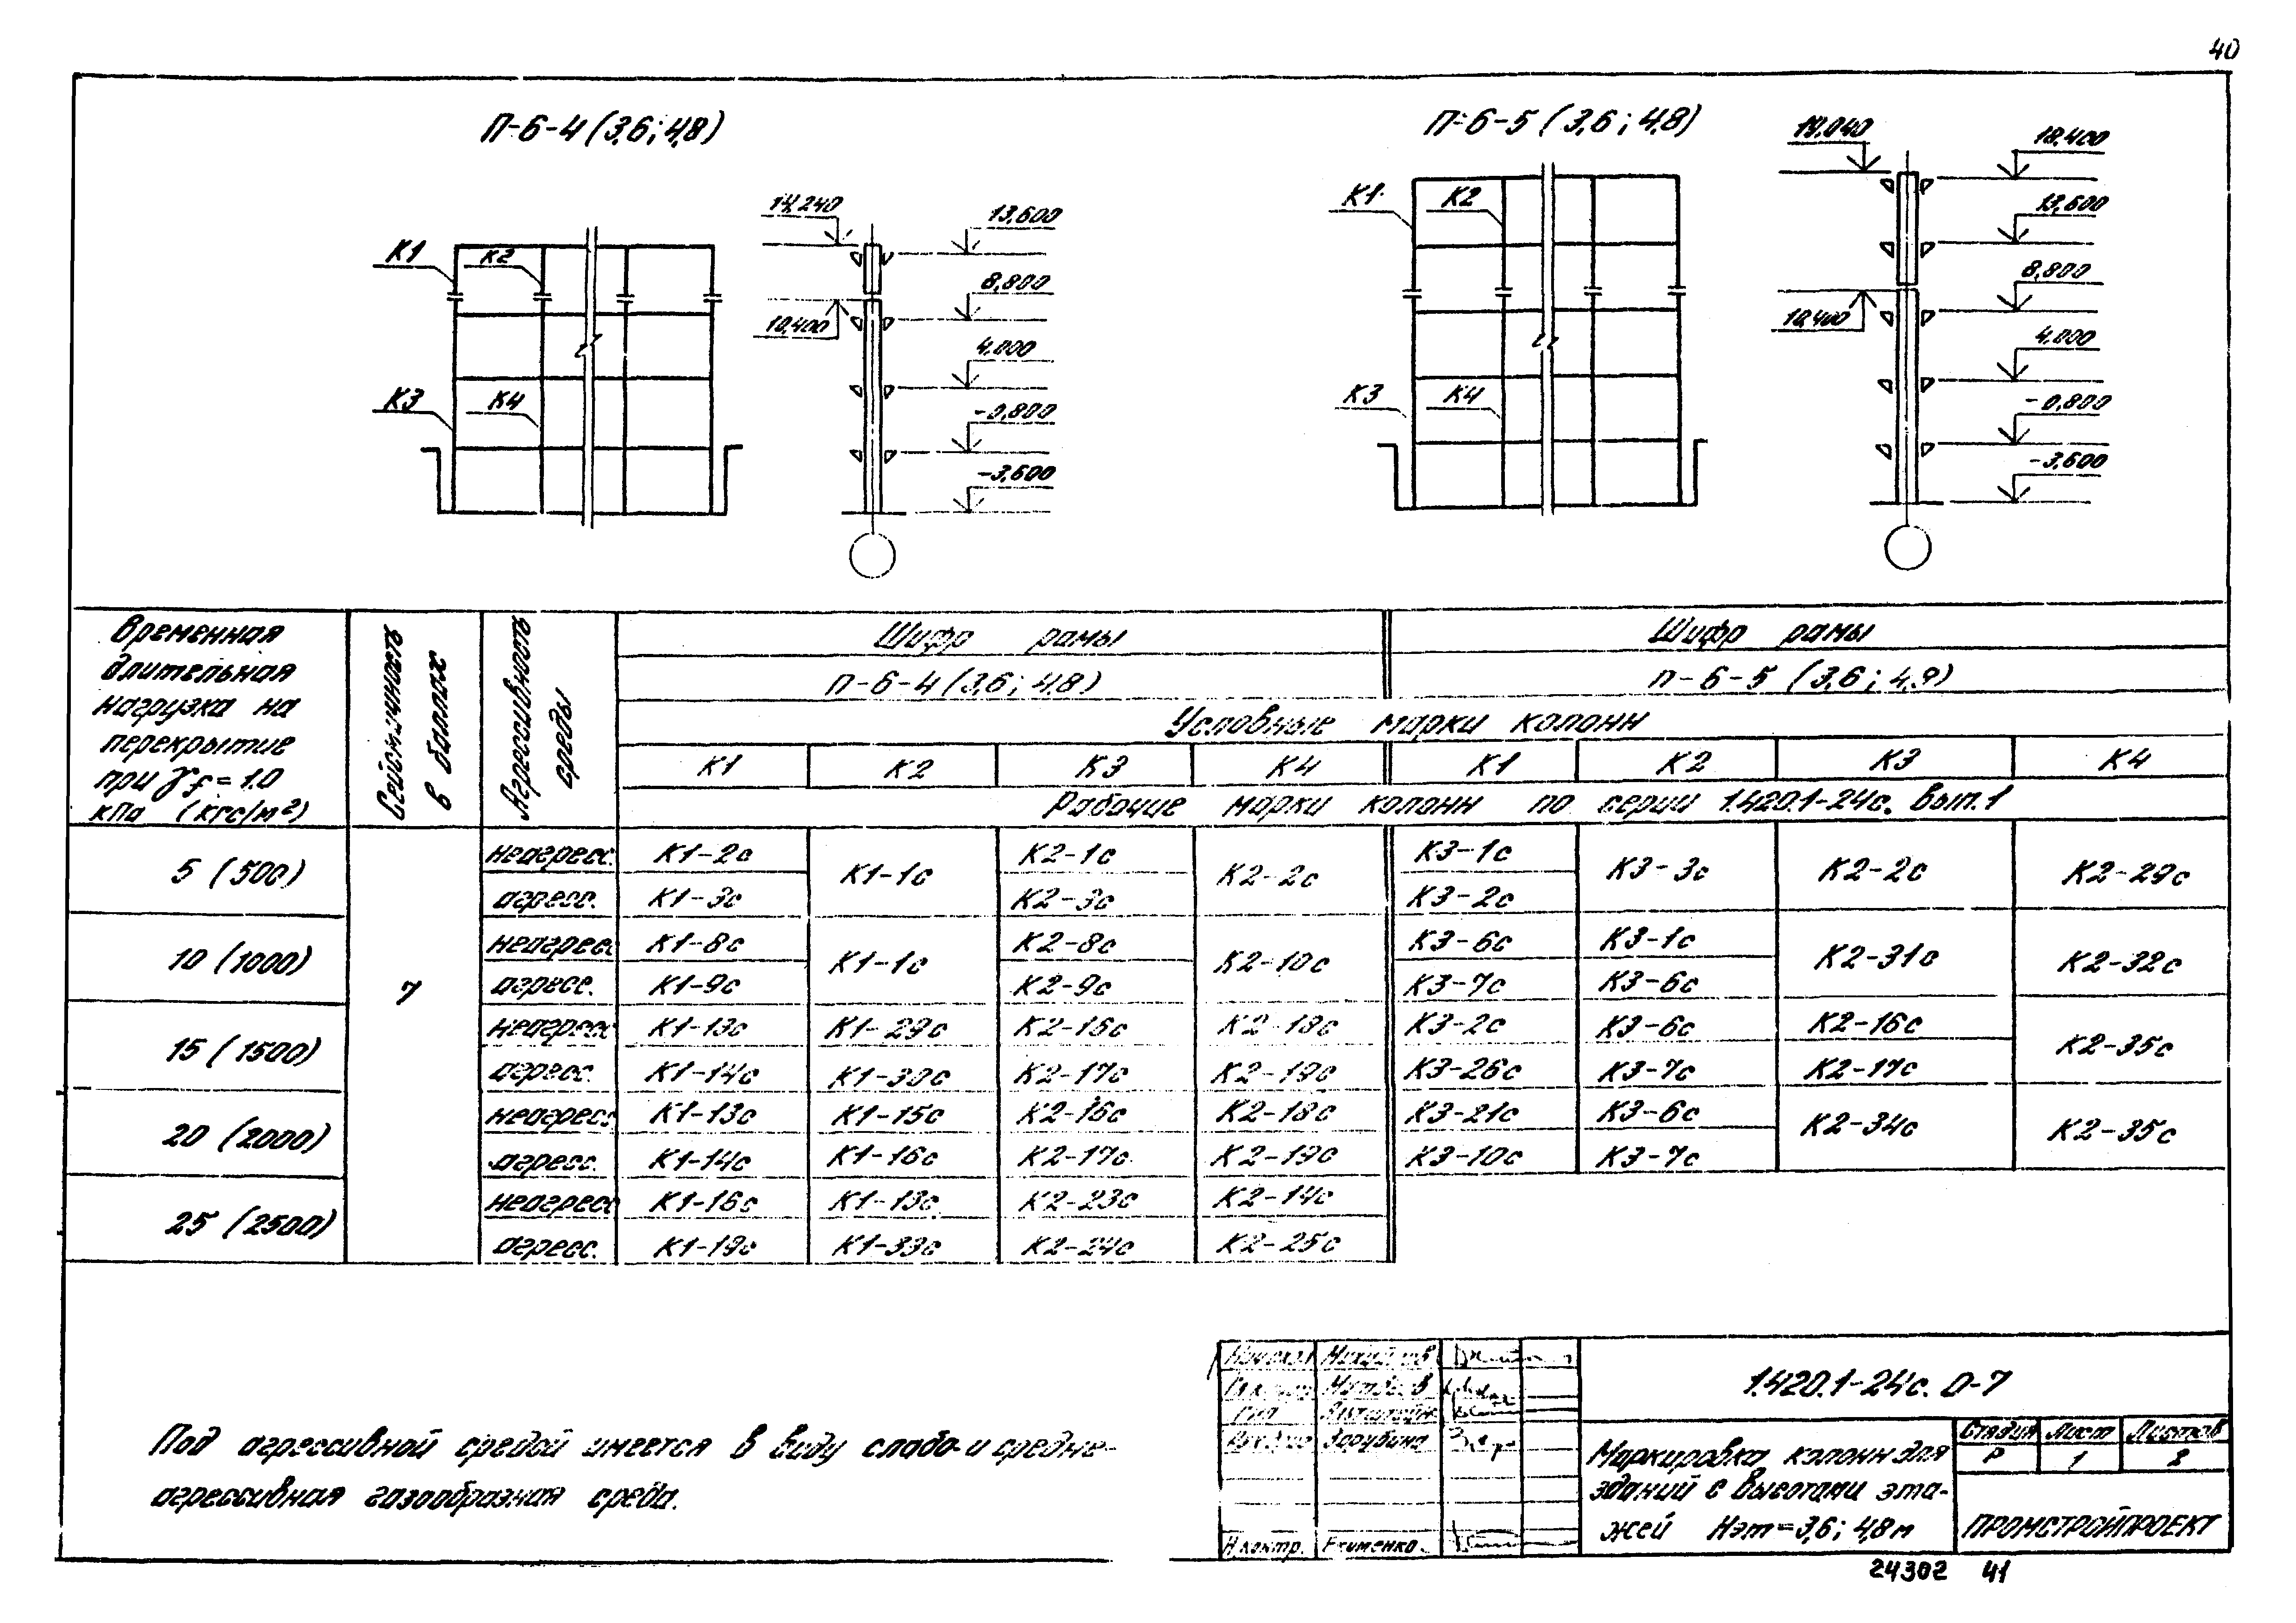 40
П-6-4 (3,6; 4,8)
К1
К2
К3
К4
14,240
13,600
8,800
10,400
4,000
-0,800
-3,600
П-6-5 (3,6; 4,8)
К1
К2
К3
К4
19,040
18,400
13,600
8,800
10,400
4,000
-0,800
-3,600
Временная длительная нагрузка на перекрытие при γf = 1.0 кПа (кгс/м²)
Сейсмичность в баллах
Агрессивность среды
Шифр рамы
Шифр рамы
П-6-4 (3,6; 4,8)
П-6-5 (3,6; 4,8)
Условные марки колонн
К1 К2 К3 К4 К1 К2 К3 К4
Рабочие марки колонн по серии 1.420.1-24с. Вып.1
5 (500) 7 неагресс. К1-2с К1-1с К2-1с К2-2с К3-1с К3-3с К2-2с К2-29с
агресс. К1-3с К2-3с К3-2с
10 (1000) неагресс К1-8с К1-1с К2-8с К2-10с К3-6с К3-1с К2-31с К2-32с
агресс. К1-9с К2-9с К3-7с К3-6с
15 (1500) неагресс К1-13с К1-29с К2-16с К2-18с К3-2с К3-6с К2-16с К2-35с
агресс. К1-14с К1-30с К2-17с К2-19с К3-26с К3-7с К2-17с
20 (2000) неагресс К1-13с К1-15с К2-16с К2-18с К3-21с К3-6с К2-34с К2-35с
агресс. К1-14с К1-16с К2-17с К2-19с К3-10с К3-7с
25 (2500) неагресс К1-16с К1-13с К2-23с К2-14с
агресс. К1-19с К1-33с К2-24с К2-25с
Под агрессивной средой имеется в виду слабо- и средне-
агрессивная газообразная среда.
Зарубина
Н.контр. Екименко
1.420.1-24с. 0-7
Маркировка колонн для
зданий с высотами эта-
жей Нэт = 3,6; 4,8 м
Стадия Лист Листов
Р 1 2
ПРОМСТРОЙПРОЕКТ
24302 41